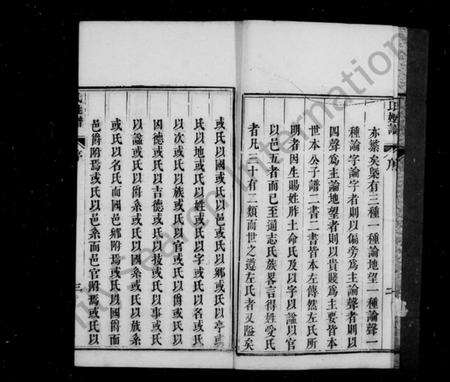 氏族譜 序 二
亦繁矣槩有三種一種論地望一種論聲一
種論字論字者則以偏旁爲主論聲者則以
四聲爲主論地望者則以貴賤爲主要皆本
世本公子譜二書二書皆本左傳然左氏所
明者因生賜姓胙土命氏及以字以諡以官
以邑五者而已至通志氏族畧言得姓受氏
者凡三十有二類而世之遵左氏者又隘矣
或氏以國或氏以邑或氏以鄉或氏以亭或
氏以地或氏以姓或氏以字或氏以名或氏
以次或氏以族或氏以官或氏以爵或氏以
因德或氏以吉德或氏以技或氏以事或氏
以諡或氏以爵系或氏以國系或氏以族系
或氏以名氏而國邑鄉附焉或氏以國爵而
邑爵附焉或氏以邑系而邑官附焉或氏以
氏族譜 序 三
International